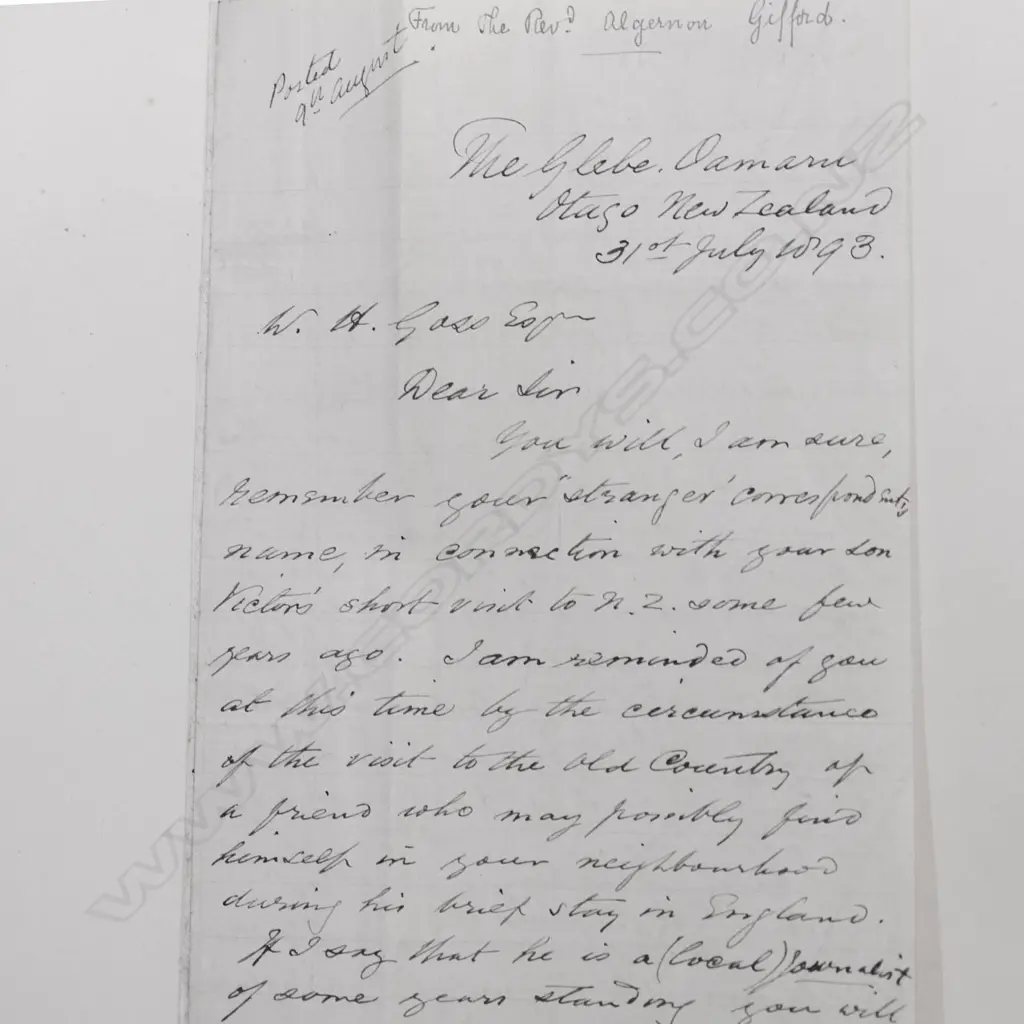 From The Revd. Algernon Gifford.
Posted
9th August
The Glebe. Oamaru
Otago New Zealand
31st July 1893.
W. H. Goss Esqr
Dear Sir
You will, I am sure,
remember your "stranger" correspondents
name, in connection with your son
Victor's short visit to N. Z. some few
years ago. I am reminded of you
at this time by the circumstance
of the visit to the Old Country of
a friend who may possibly find
himself in your neighbourhood
during his brief stay in England.
If I say that he is a (local) journalist
of some years standing you will